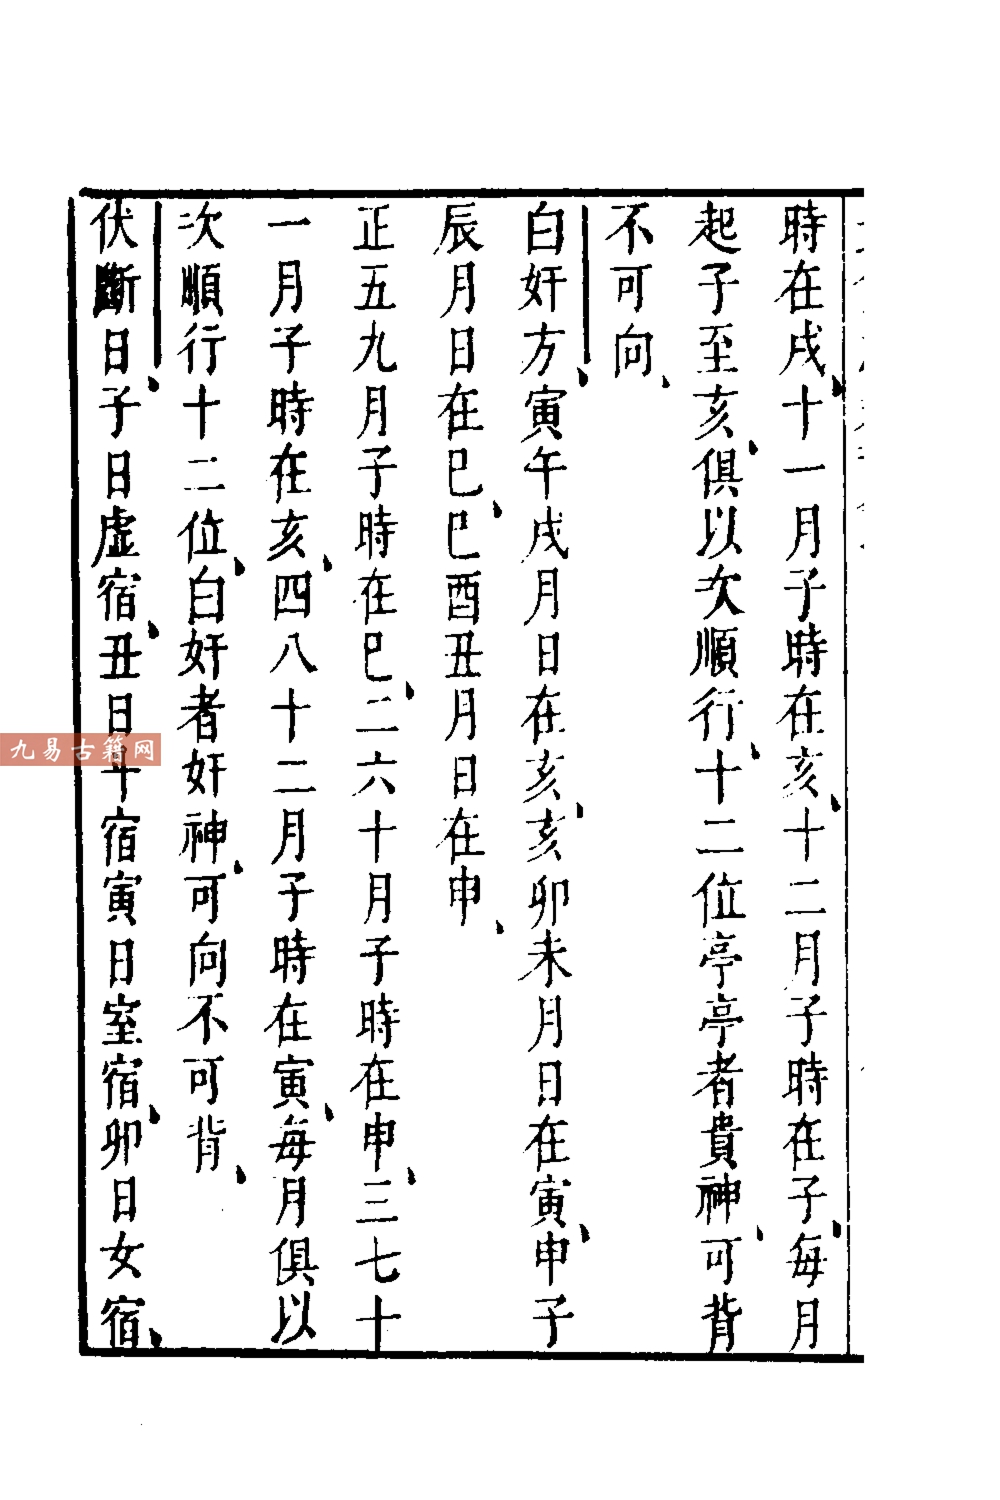 時在戌、十一月子時在亥、十二月子時在子、每月
起子至亥、俱以次順行、十二位亭亭者貴神、可背
不可向、
白奸方、寅午戌月日在亥、亥卯未月日在寅、申子
辰月日在巳、巳酉丑月日在申、
正五九月子時在巳、二六十月子時在申、三七十
一月子時在亥、四八十二月子時在寅、每月俱以
次順行十二位、白奸者奸神、可向不可背、
伏斷日、子日虛宿、丑日斗宿寅日室宿、卯日女宿、
九易古籍网